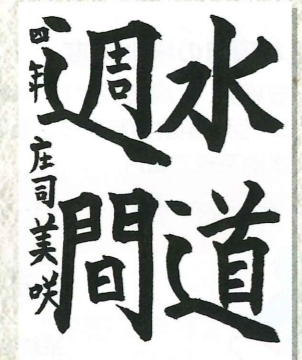 水道
週間
四年 庄司美咲